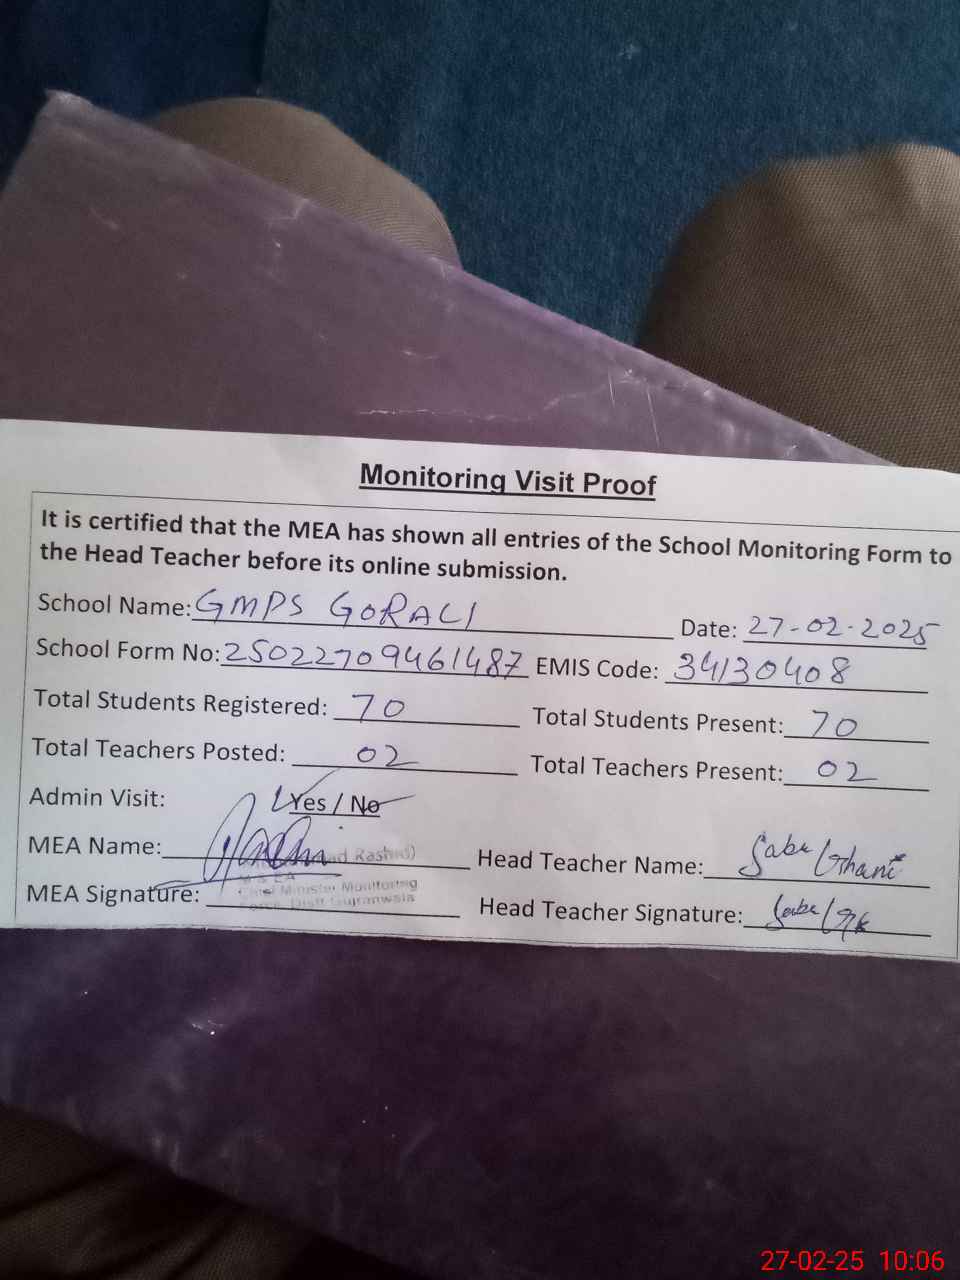 Monitoring Visit Proof
It is certified that the MEA has shown all entries of the School Monitoring Form to
the Head Teacher before its online submission.
School Name: GMPS GORALI Date: 27-02-2025
School Form No: 25022709461487 EMIS Code: 34130408
Total Students Registered: 70 Total Students Present: 70
Total Teachers Posted: 02 Total Teachers Present: 02
Admin Visit: Yes / No
MEA Name: Rashid) Head Teacher Name: Saba Ghani
MEA Signature: Chief Minister Monitoring Head Teacher Signature:
Force Distt Gujranwala
27-02-25 10:06